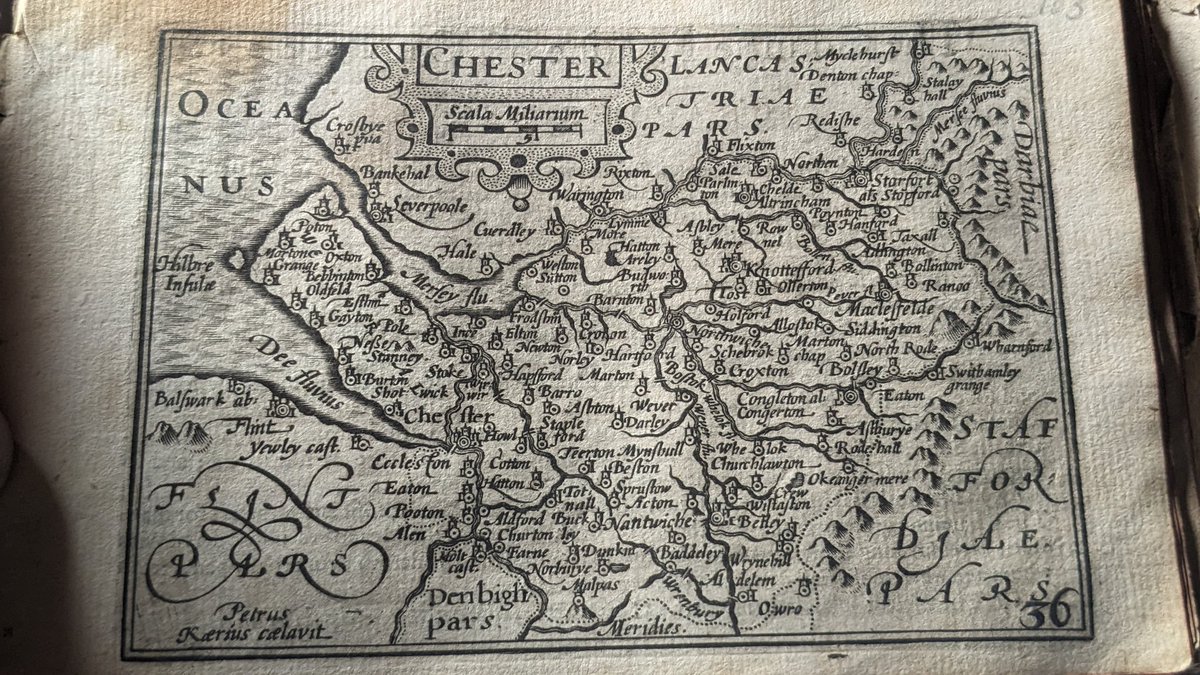 CHESTER
Scala Miliarum
5
LANCAS:
TRIAE
PARS.
OCEA
NUS
Myclehurst
Denton chap:
Stalay
hall
Mersee fluvius
Redishe
Darbiae
pars
Crosbye
Flixton
Hardesn
Bankehal
Rixton
Sale
Northen
Parlin
ton
Chelde
Starfort
als Stopford
Warington
Altrincham
Severpoole
Poynton
Hanford
Cuerdley
Lymme
Ashley
Row
nel
Taxall
Poton
More
Hatton
Areley
Mere
Adlington
Hale
Hilbre
Insulæ
Morton
Grange
Oxton
Weston
Sutton
Knottesford
Bollinton
Bebbinton
Oldfeld
Mersey flu
Budwo
rth
Tost
Ollerton
Ranoo
Barnton
Gayton
Frodshm
Holford
Maclesfelde
Pole
Ince
Elton
Crohon
Northwiche
Allostok
Siddington
Nesse
Newton
Marton
Stanney
Norley
Hartford
Schebrok
chap
North Rode
Wharnford
Dee fluvius
Stoke
Hapsford
Marton
Croxton
Bolsley
Swithamley
grange
Burton
Shot-wick
wir
Barro
Bostok
Balswark ab:
Wever
Congleton al:
Congerton
Eaton
Chester
Ashton
Flint
Staple
ford
Darley
Astburye
STAF
Howl
Yewley cast.
Teerton
Mynsbull
Whelok
Rodeshall
Eccleston
Cotton
Beston
Churchlawton
Hatton
Okeanger mere
FOR
FLINT
Eaton
Tot
nall
Sprustow
Crew
Pooton
Acton
Wistaston
Aldford
Buck
ley
Nantwiche
Betley
DIAE.
Alen
Churton
PARS
Holt
cast
Farne
Dunkin
Baddeley
Wrynehill
Norburye
Al
delem
PARS
Denbigh
pars.
Malpas
Wrenbury
Owro
Petrus
Kærius cælavit
Meridies.
36